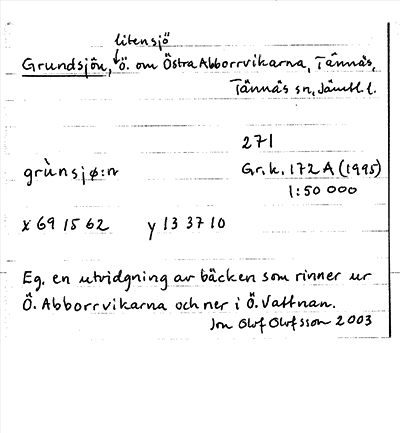 liten sjö
Grundsjön, Ö. om Östra Abborrvikarna, Tännäs,
Tännäs sn, Jämtl. l.
271
grùnsjø:n
Gr. k. 172 A (1995)
1:50 000
x 69 15 62 y 13 37 10
Eg. en utvidgning av bäcken som rinner ur
Ö. Abborrvikarna och ner i Ö. Vattnan.
Jon Olof Olofsson 2003